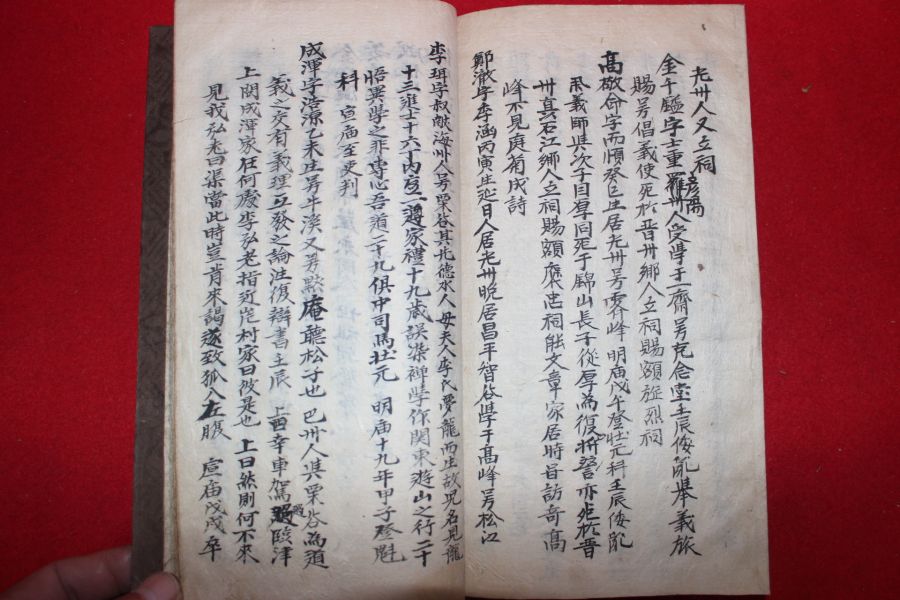 光州人又立祠
金千鎰字士重羅州人受學于一齋号克念堂壬辰倭亂擧義旅
彦陽
賜号倡義使死於晋州鄉人立祠賜額旌烈祠
高敬命字而順癸巳生居光州号霽峰明庙戊午登壯元科壬辰倭亂
義師與次子因厚同死于錦山長子從厚為復拆營亦死於晋
州真石江鄉人立祠賜額褒忠祠能文章家居時昔訪奇高
峰不見庭菊成詩
鄭澈字季涵丙寅生延日人居光州晩居昌平智谷學于高峰号松江
李珥字叔献海州人号栗谷其先德水人母夫人李氏夢龍而生故児名見龍
十三進士十六丁内一遵家禮十九歲誤染禅學作関東遊山之行二十
悟異學之非專心吾道二十九俱中司馬壯元 明庙十九年甲子登魁
科 宣庙至吏判
成渾字浩源乙未生号牛溪又号默庵聽松子也巴州人與栗谷為道
義之交有義理互發之論注復辯書壬辰 上西幸車駕臨津
上問成渾家在何處李弘老指近岸村家曰彼是也 上曰然則何不來
見我弘老曰渠當此時豈肯來謁遂致狐入左腹 宣庙戊戌卒